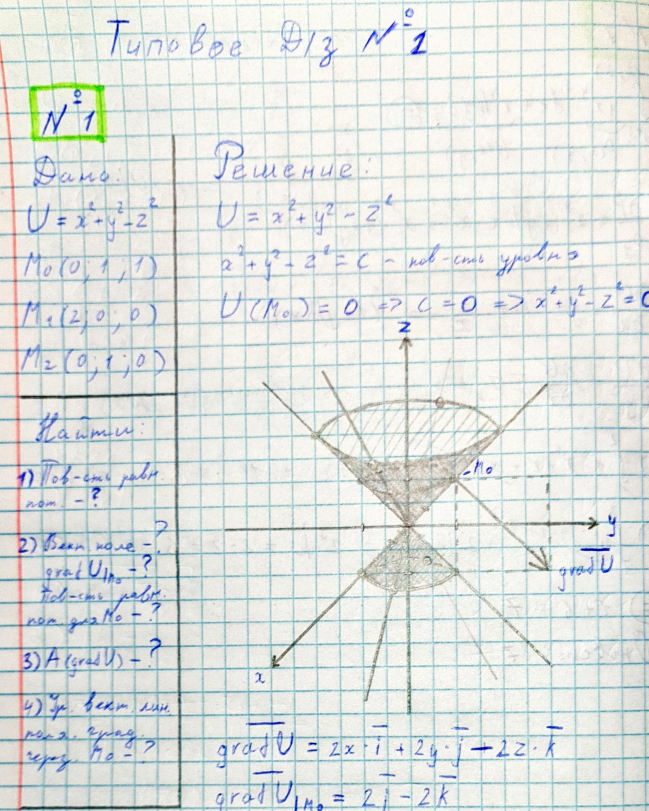 Типовое Д/з №1
№1
Дано:
U = x² + y² - z²
M₀(0; 1; 1)
M₁(2; 0; 0)
M₂(0; 1; 0)
Найти:
1) Пов-сть равн.
пот. - ?
2) Вект. поле - ?
grad U|M₀ - ?
Пов-сть равн.
пот для M₀ - ?
3) A(grad U) - ?
4) Ур. вект. лин.
поля. град.
через. M₀ - ?
Решение:
U = x² + y² - z²
x² + y² - z² = C - пов-сть уровня
U(M₀) = 0 => C = 0 => x² + y² - z² = 0
z
M₀
y
grad U
x
grad U = 2x·i + 2y·j - 2z·k
grad U|M₀ = 2j - 2k